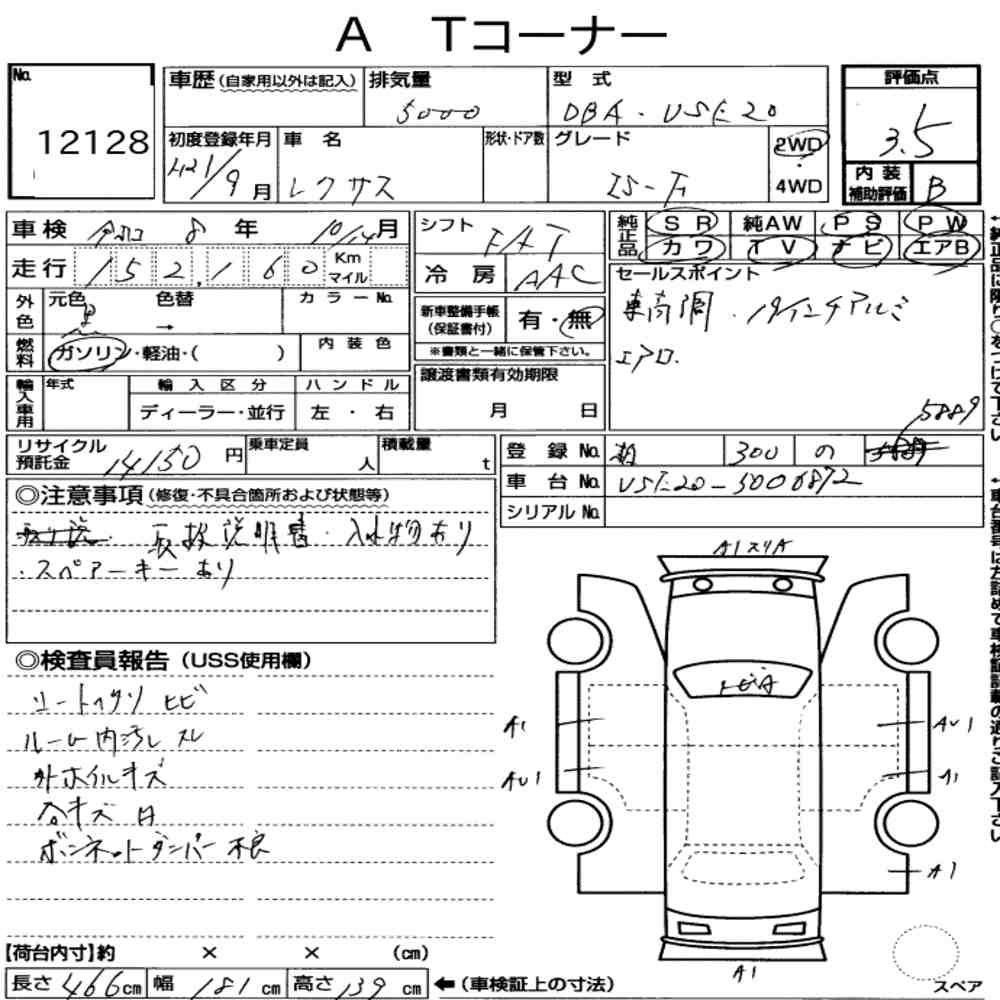 A Tコーナー
No. 12128
車歴 (自家用以外は記入)
排気量 5000
型式 DBA-USE20
評価点 3.5
初度登録年月 H21/9月
車名 レクサス
形状・ドア数
グレード IS-F
2WD・4WD
内装補助評価 B
車検 8年 10/14月
走行 152,160 Km マイル
シフト FAT
冷房 AAC
純正品 SR 純AW PS PW
カワ TV ナビ エアB
セールスポイント
車高調. 19インチアルミ
エアロ.
外色 元色 黒 色替 → カラーNo.
燃料 ガソリン・軽油・( ) 内装色
新車整備手帳(保証書付) 有・無
※書類と一緒に保管下さい。
譲渡書類有効期限 月 日
輸入車用 年式 輸入区分 ディーラー・並行 ハンドル 左・右
リサイクル預託金 14150円
乗車定員 人
積載量 t
5889
登録No. 300 の
車台No. USE20-5006872
シリアルNo.
◎注意事項 (修復・不具合箇所および状態等)
取扱説明書. 入
・スペアーキーあり
◎検査員報告 (USS使用欄)
シートヘタリ ヒビ
ルーム内汚レ スレ
外ホイルキズ
各キズ 凹
ボンネットダンパー不良
A1スリA
トビA
A1
AU1
AU1
A1
A1
A1
スペア
【荷台内寸】約 × × (cm)
長さ 466cm 幅 181cm 高さ 139cm ←(車検証上の寸法)